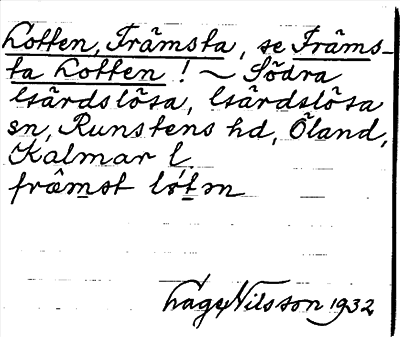 Lotten, Främsta, se Främs-
ta Lotten! ~ Södra
Gärdslösa, Gärdslösa
sn, Runstens hd, Öland,
Kalmar l.
främst lótən
Åge Nilsson 1932